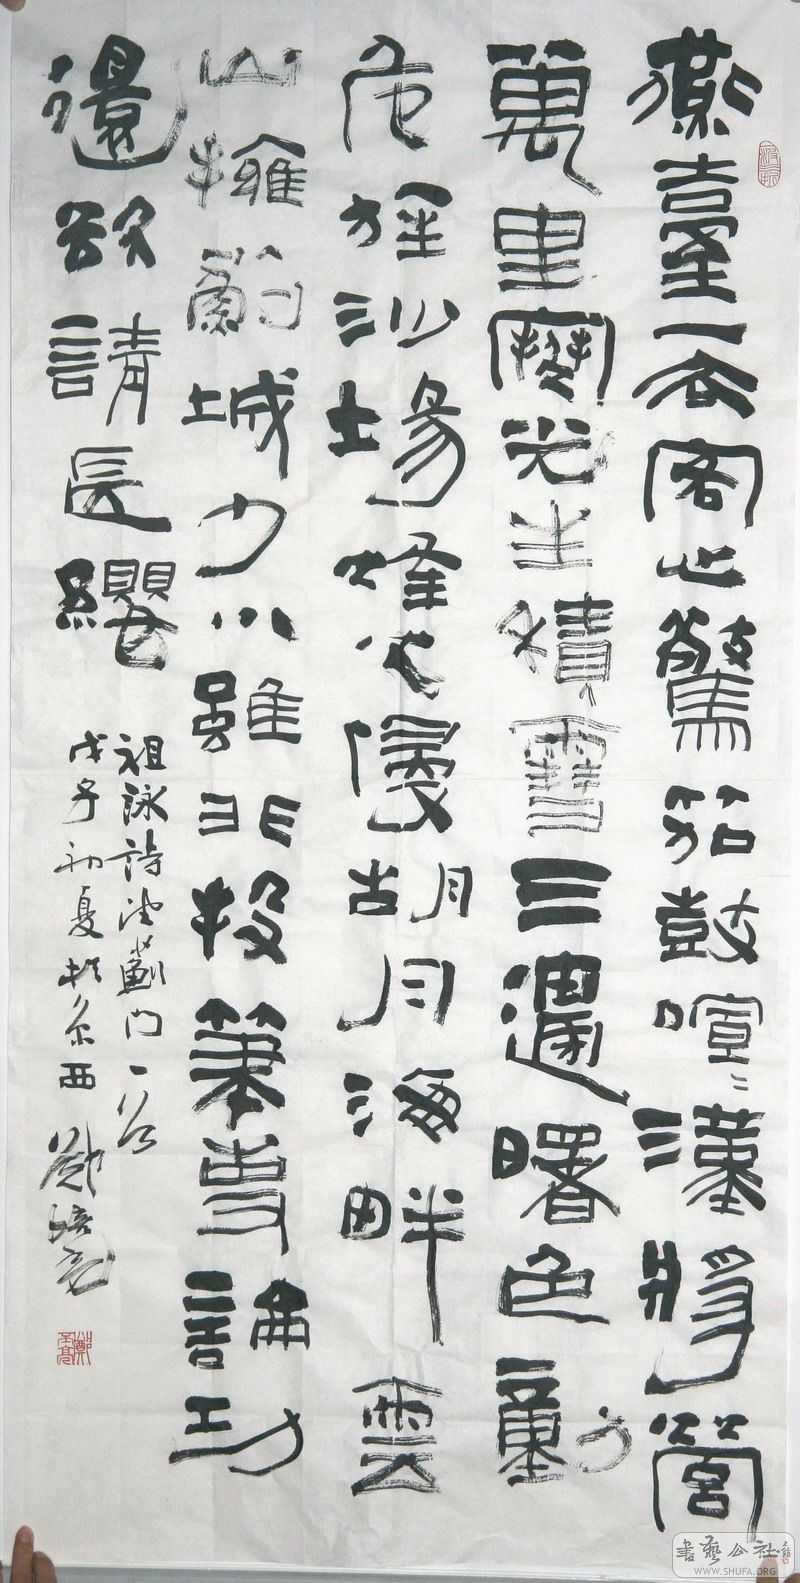 燕臺一去客心驚笳鼓喧〻漢將營
萬里寒光生積雪三邊曙色動
危旌沙場烽火侵胡月海畔雲
山擁薊城少小雖非投筆吏論功
還欲請長纓
祖泳詩望薊門一首
戊子初夏於京西 鄭培亮
書藝公社
WWW.SHUFA.ORG